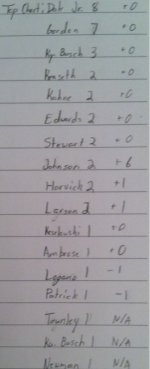 Top Chart: Dale Jr. 8 +0
Gordon 7 +0
Ky. Busch 3 +0
Kenseth 2 +0
Kahne 2 +0
Edwards 2 +0
Stewart 2 +0
Johnson 2 +6
Harvick 2 +1
Larson 2 +1
Keselowski 1 +0
Ambrose 1 +0
Logano 1 -1
Patrick 1 -1
Townley 1 N/A
Ku. Busch 1 N/A
Newman 1 N/A